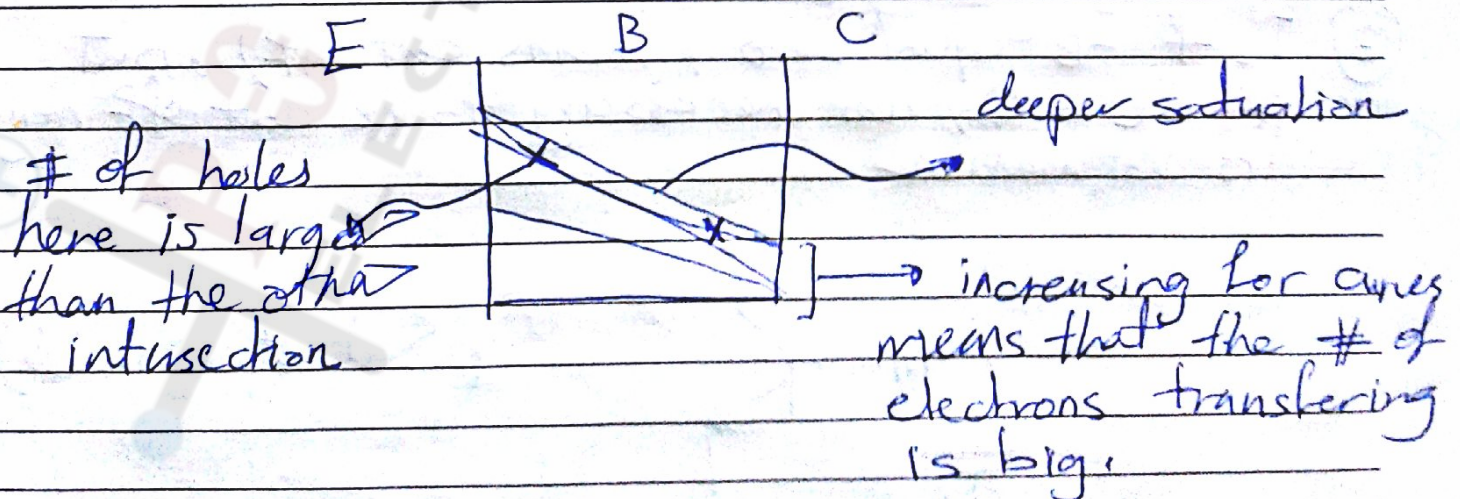 E B C
deeper satuation
# of holes
here is larger
than the other
intersection
increasing for curves
means that the # of
electrons transfering
is big.